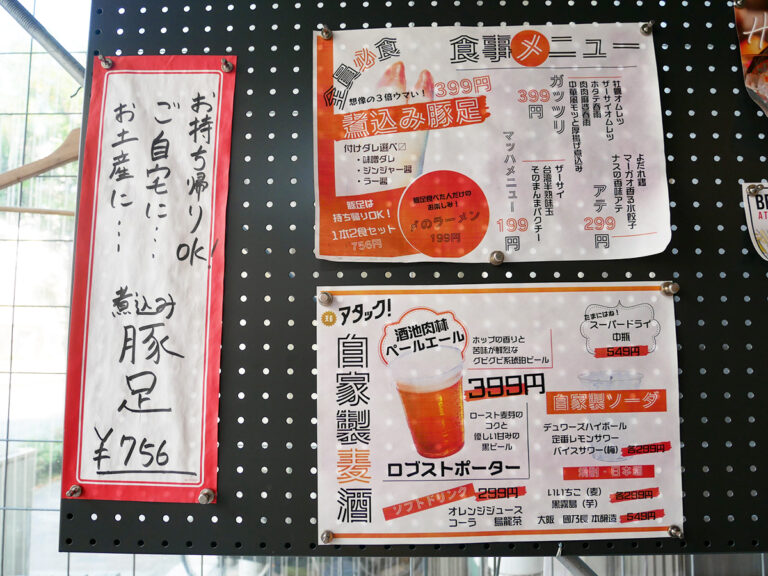 お持ち帰りOK!
ご自宅に…
お土産に…
煮込み
豚足
¥756
全員必食
食事メニュー
想像の3倍ウマい!
399円
煮込み豚足
付けダレ選べ〼
・味噌ダレ
・ジンジャー醤
・ラー醤
豚足は
持ち帰りOK!
1本2食セット
756円
豚足食べた人だけの
お楽しみ!
〆のラーメン
199円
ガッツリ
399円
牡蠣オムレツ
ザーサイオムレツ
ホタテ春雨
肉肉麻婆春雨
中華風モツと厚揚げ煮込み
マッハメニュー
199円
ザーサイ
台湾半熟味玉
そのまんまパクチー
アテ
299円
よだれ鶏
マーガオ香る水餃子
ナスの香味アテ
アタック!
自家製麦酒
酒池肉林
ペールエール
ホップの香りと
苦味が鮮烈な
グビグビ系琥珀ビール
399円
ロースト麦芽の
コクと
優しい甘みの
黒ビール
ロブストポーター
ソフトドリンク
299円
オレンジジュース
コーラ 烏龍茶
たまにはね!
スーパードライ
中瓶
549円
自家製ソーダ
デュワーズハイボール
定番レモンサワー
バイスサワー(梅) 各299円
焼酎・日本酒
いいちこ(麦)
黒霧島(芋)
各299円
大阪 國乃長 本醸造 549円